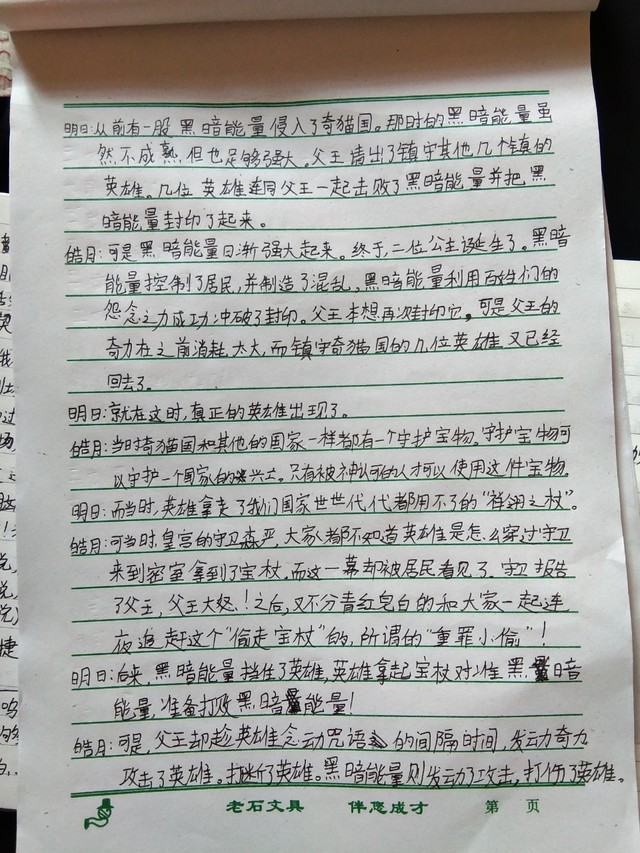 明日:从前有一股黑暗能量侵入了奇猫国。那时的黑暗能量虽
然不成熟但也足够强大。父王请出了镇守其他几个镇的
英雄。几位英雄连同父王一起击败了黑暗能量并把黑
暗能量封印了起来。
皓月:可是黑暗能量日渐强大起来。终于,二位公主诞生了。黑暗
能量控制了居民,并制造了混乱,黑暗能量利用百姓们的
怨念之力成功冲破了封印。父王本想再次封印它。可是父王的
奇力在之前消耗太大,而镇守奇猫国的几位英雄又已经
回去了。
明日:就在这时,真正的英雄出现了。
皓月:当时奇猫国和其他的国家一样都有一个守护宝物。守护宝物可
以守护一个国家的兴亡。只有被神认可的人才可以使用这件宝物。
明日:而当时,英雄拿走了我们国家世世代代都用不了的“祥翎之杖”。
皓月:可当时,皇宫的守卫森严,大家都不知道英雄是怎么穿过守卫
来到密室拿到了宝杖,而这一幕却被居民看见了。守卫报告
了父王,父王大怒!之后,又不分青红皂白的和大家一起连
夜追赶这个“偷走宝杖”的,所谓的“重罪小偷”!
明日:后来,黑暗能量挡住了英雄,英雄拿起宝杖对准黑暗
能量,准备打败黑暗能量!
皓月:可是,父王却趁英雄念动咒语的间隔时间,发动奇力
攻击了英雄。打断了英雄。黑暗能量则发动了攻击,打伤了英雄。
老石文具 伴您成才 第 页